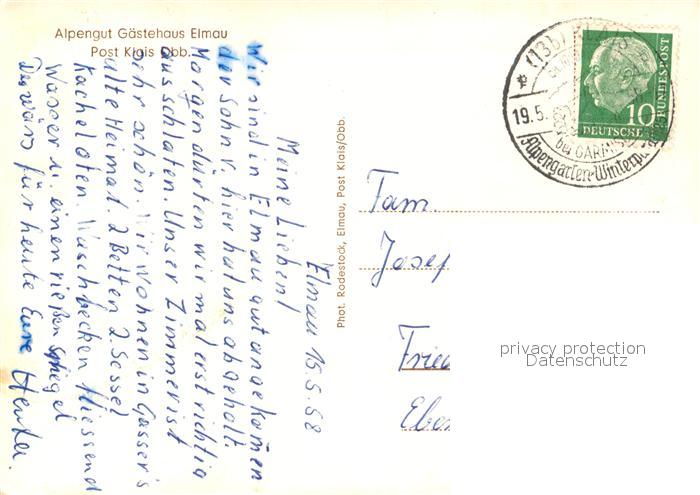 Alpengut Gästehaus Elmau
Post Klais Obb.
Elmau 15.5.58
Meine Lieben!
Wir sind in Elmau gut angekom̄en
der Sohn v. hier hat uns abgehohlt.
Morgen dürfen wir mal erst richtig
ausschlafen. Unser Zimmer ist
sehr schön. Wir wohnen in Gasser's
alte Heimat. 2 Betten 2 Sessel
Kachelofen. Waschbecken fliessend
Wasser u. einen rießen Spiegel
Das wärs für heute Eure
Phot. Rodestock, Elmau, Post Klais/Obb.
(13b) KLAIS
19.5.
bei GARMISCH
Alpengarten-Winterp
10
DEUTSCHE
BUNDESPOST
Fam.
Josef
Fried
Eben
privacy protection
Datenschutz